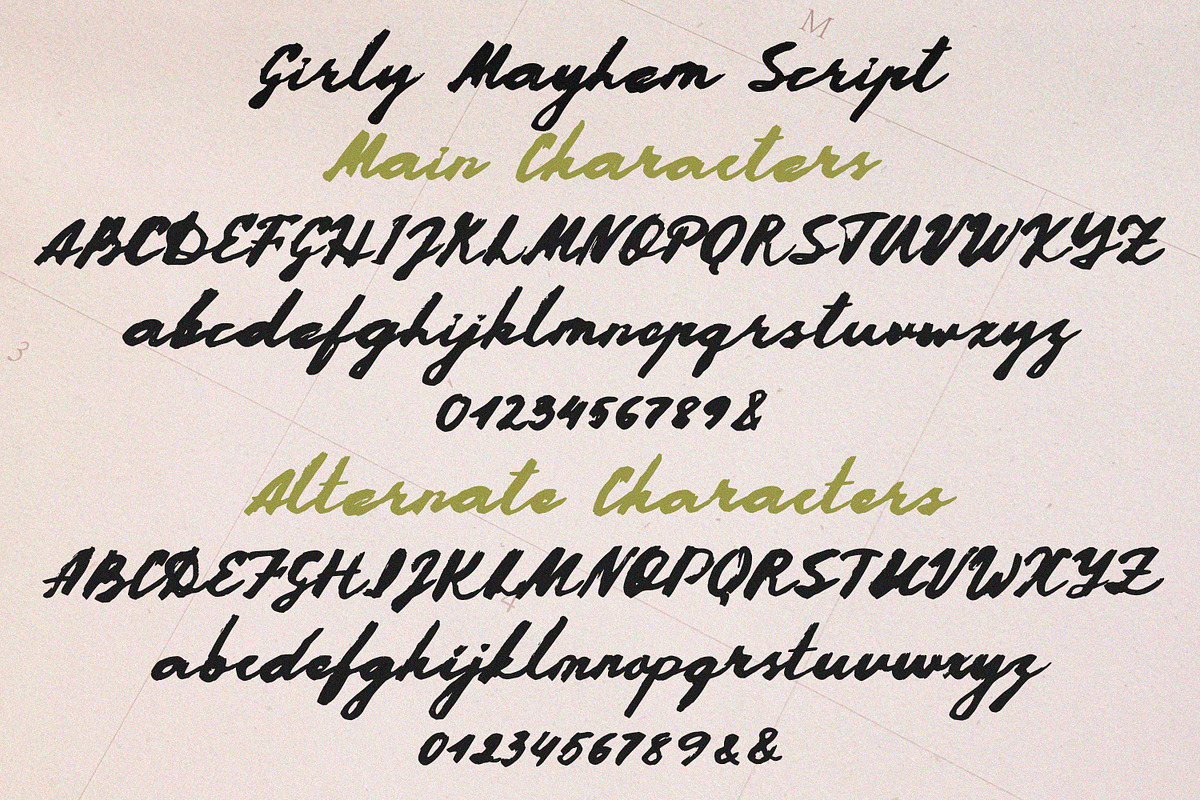 M
Girly Mayhem Script
Main Characters
ABCDEFGHIJKLMNOPQRSTUVWXYZ
abcdefghijklmnopqrstuvwxyz
3
0123456789&
Alternate Characters
ABCDEFGHIJKLMNOPQRSTUVWXYZ
4
abcdefghijklmnopqrstuvwxyz
0123456789&&